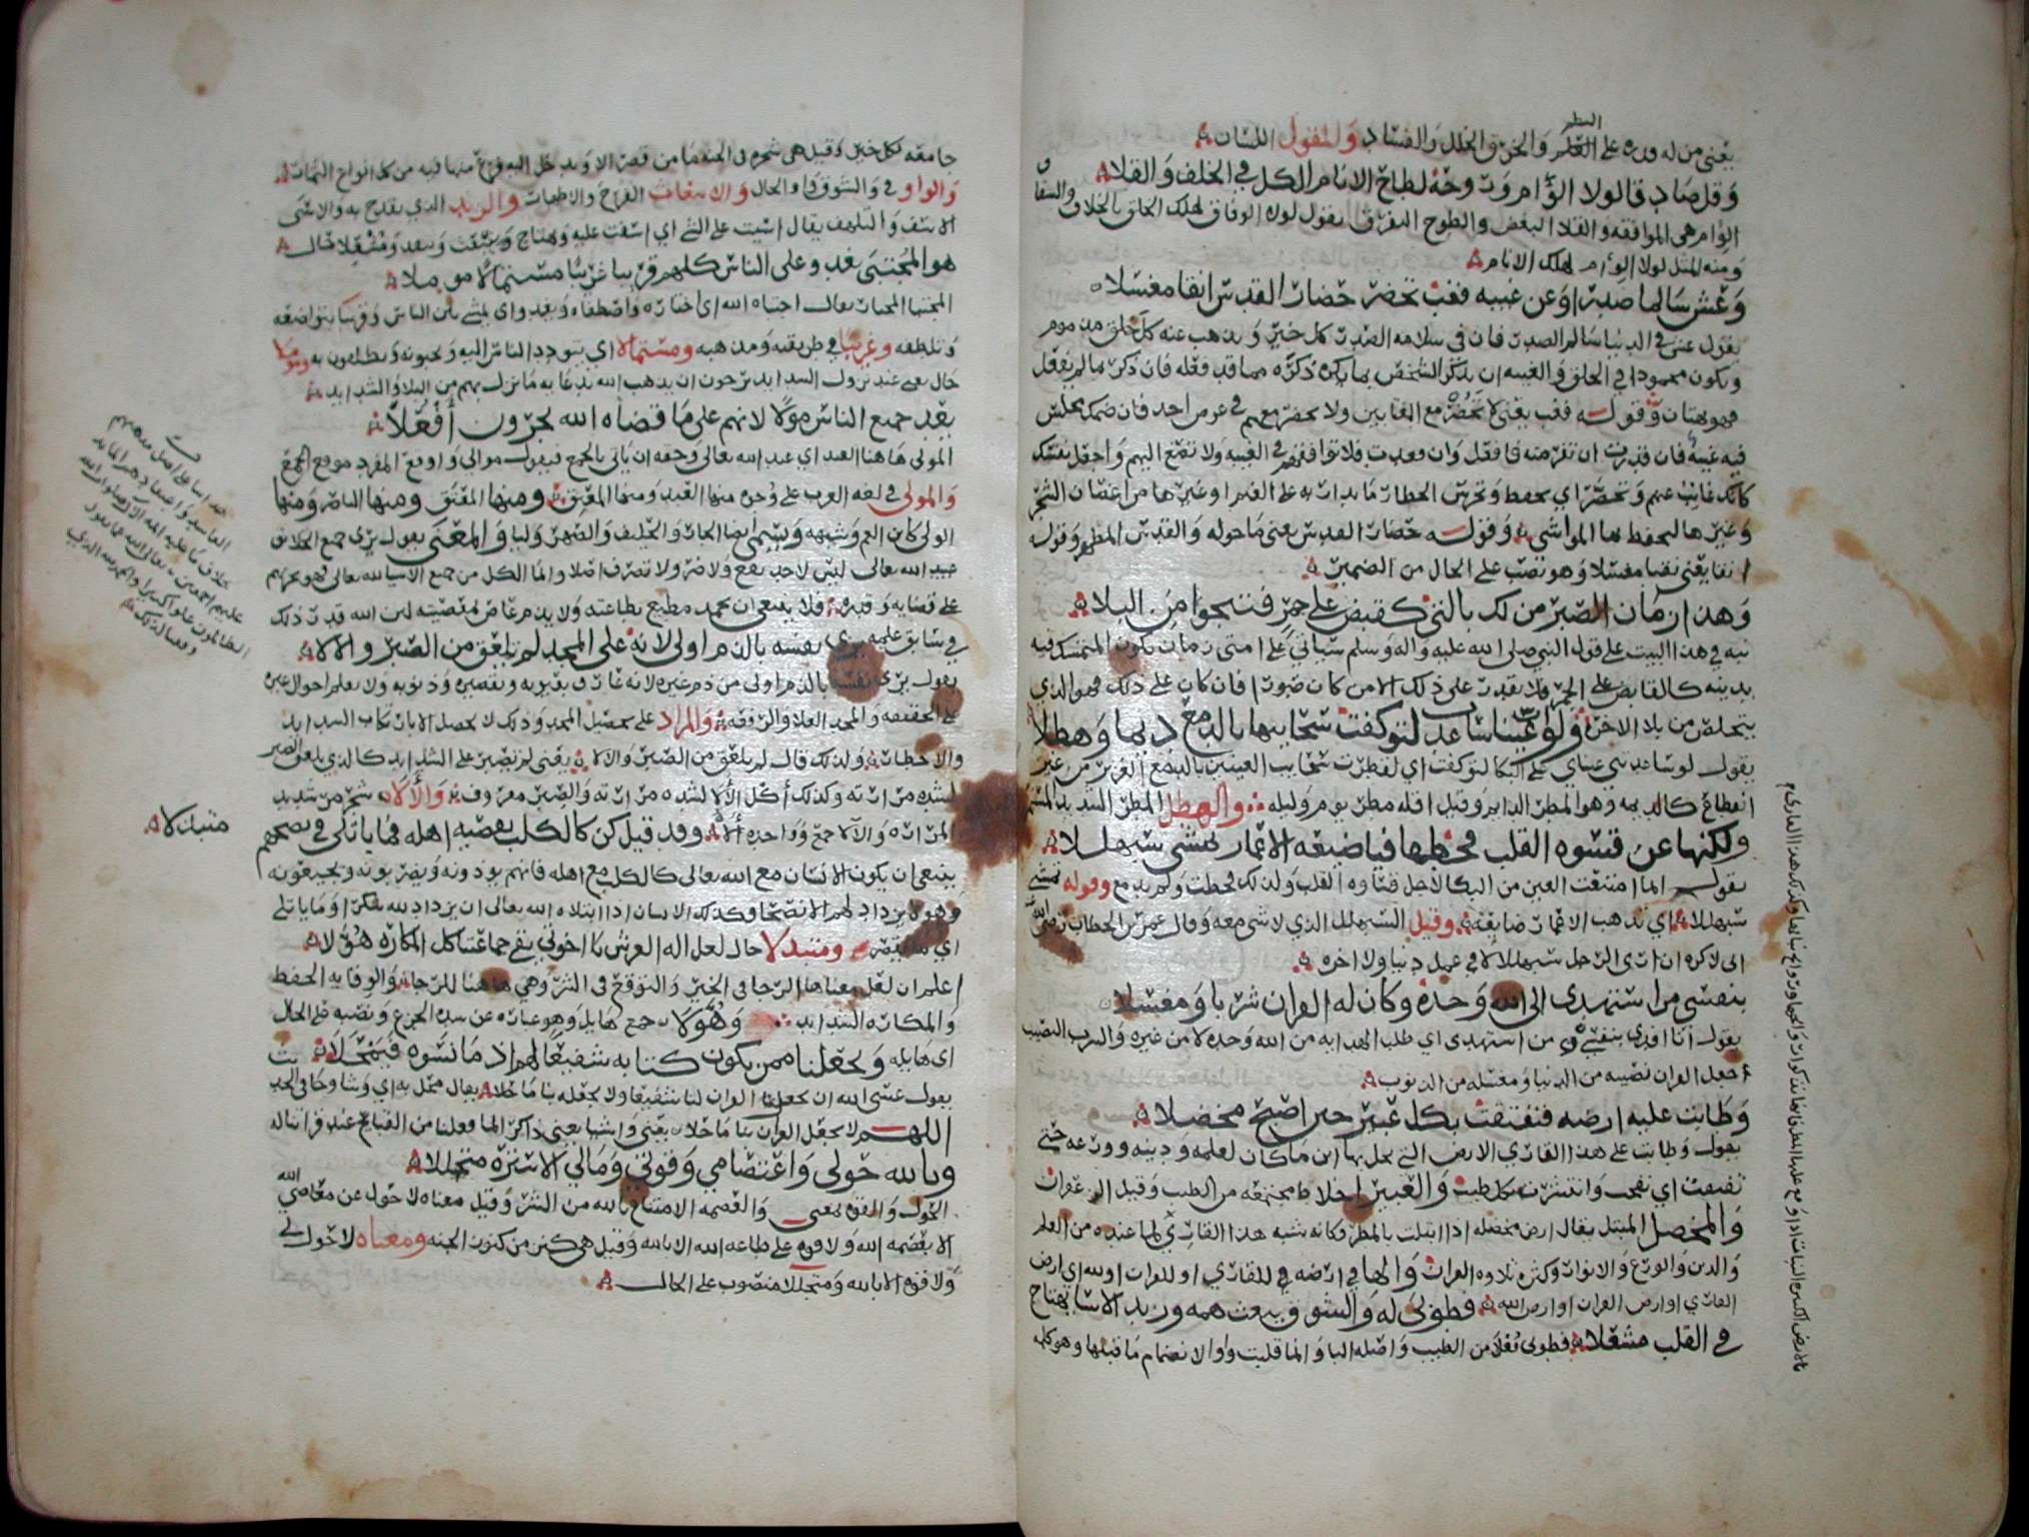 النظر
يعني من له قدره على العلم والخرق الخلل والفساد والمقول اللسان
وقل صادقا لولا الوئام وروحه لطاح الانام الكل في الخلف والقلا
الوئام هي الموافقه والقلا البغض والطوح التفرق يقول لولا الوفاق لهلك الخلق بالخلاف والشقاق
ومنه المثل لولا الوئام لهلك الانام
وعش سالما صدرا وعن غيبه فغب تحضر حضار القدس انقا مغسلا
يقول عش في الدنيا سالم الصدر فان في سلامه الصدر كل خير ويذهب عنه كل خلق مذموم
ويكون محمودا في الخلق والغيبه ان يذكر الشخص بما يكره ذكره مما قد فعله فان ذكر ما لم يفعل
فهو بهتان وقوله فغب يعني لا تحضر مع المغتابين ولا تحضر معهم في عرض احد فان ضمك مجلس
فيه غيبة فان قدرت ان تفر منه فافعل وان فعدت فلا توافقهم في الغيبه ولا تصغ اليهم واجعل نفسك
كانك غائب عنهم وتحضر اي تحفظ وتحرس الحظار ما يدار به على الغنم وغيرها من اغصان الشجر
وغيرها لتحفظ بها المواشي وقوله حضار القدس يعني ما حوله والقدس المطهر وقوله
انقا يعني نقيا مغسلا وهو نصب على الحال من الضمير
وهذا زمان الصبر من لك بالتي كقبض على جمر فتنجوا من البلا
نبه في هذا البيت على قول النبي صلى الله عليه واله وسلم سياتي على امتي زمان يكون المتمسك فيه
بدينه كالقابض على الجمر فلا يقدر على ذلك الا من كان صبورا فان كان على ذلك فهو الذي
يتخلص من بلا الاخره ولو ان عينا ساعدت لتوكفت سحايبها بالدمع ديما وهطلا
يقول لو ساعدتني عيناي على البكا لتوكفت اي لقطرت سحايب العينين بالدمع الغزير من غير
انقطاع كالديمه وهو المطر الدايم وقيل اقله مطر يوم وليله والهطل المطر الشديد
ولكنها عن قسوه القلب قحطها فيا ضيعه الاعمار تمشي سبهللا
يقول انما امتنعت العين من البكا لاجل قساوه القلب ولذلك قحطت ولم تدمع وقوله تمشي
سبهللا اي تذهب الاعمار ضايعه وقيل السبهلل الذي لا شي معه وقال عمر بن الخطاب رضي الله
اني لاكره ان ارى الرجل سبهللا لا في عمل دنيا ولا اخره
بنفسي من استهدى الى الله وحده وكان له القران شربا ومغسلا
يقول انا افدي بنفسي من استهدى اي طلب الهدايه من الله وحده لا من غيره والشرب النصيب
اجعل القران نصيبه من الدنيا ومغسله من الذنوب
وطابت عليه ارضه فتفتقت بكل عبير حين اصبح مخضلا
يقول وطابت على هذا القاري الارض التي يحل بها اين ما كان لعلمه ودينه وورعه حتى
تفتقت اي تفتحت وانتشرت بكل طيب والعبير اخلاط مجتمعه من الطيب وقيل الزعفران
والمخضل المبتل يقال ارض مخضله اذا ابتلت بالمطر وكانه شبه هذا القاري لما عنده من العلم
والدين والورع والانوار وكثره تلاوه القران والها في ارضه للقاري او للقران او لله اي ارض
القاري او ارض القران او ارض الله فطوبى له والشوق يبعث همه وزند الاسا يهتاج
في القلب مشعلا فطوبى فعلا من الطيب واصله اليا وانما قلبت واوا لانضمام ما قبلها وهو كلمه
جامعه لكل خير وقيل هي شجره في الجنه ما من قصر الا ويدخل اليه فرع منها فيه من كل انواع الثمرات
والواو في والشوق واو الحال والانبعاث الفرح والانطباث والزند الذي يقدح به والاسى
الاسف والتلهف يقال اسيت على الشي اي اسفت عليه ويهتاج وينبعث ويتقد ومشعلا حال
هو المجتبى يغدو على الناس كلهم قريبا غريبا مستمالا مومملا
المجتبا المختار يقال اجتباه الله اي اختاره واصطفاه ويغدو اي يمشي بين الناس وقريبا بتواضعه
وتلطفه وغريبا في طريقته ومذهبه ومستمالا اي يتودد الناس اليه ويحبونه ويطلبون به ومؤملا
حال يعني عند نزول الشدايد يرجون ان يذهب الله بدعايه ما نزل بهم من البلا والشدايد
يعد جميع الناس مولا لانهم على ما قضاه الله يجرون أفعلا
المولى ها هنا العبد اي عبد الله تعالى وحقه ان ياتي بالجمع فيقول موالي واوقع المفرد موقع الجمع
والمولى في لغه العرب على وجوه منها العبد ومنها المعتق ومنها المعتق ومنها الناصر ومنها
الولي كابن العم وشبهه ويسمى ايضا الجار والحليف والصهر وليا والمعنى يقول يرى جميع الخلايق
عبيد الله تعالى ليس لاحد نفع ولا ضر ولا تصرف اصلا وانما الكل من جميع الاشيا لله تعالى فهو يجريهم
على قضايه وقدره فلا ينبغي ان يحمد مطيع بطاعته ولا يذم عاص لمعصيته لان الله قدر ذلك
في سابق علمه يرى نفسه بالذم اولى لانه على المجد لم تلعق من الصبر والالا
يقول يرى نفسه بالذم اولى من ذم غيره لانه عارف بعيوبه وتقصيره وذنوبه ولا يعلم احوال غيره
على الحقيقه والمجد العلا والرفعه والمراد على تحصيل المجد وذلك لا يحصل الا بارتكاب الشدايد
والاخطار ولذلك قال لم تلعق من الصبر والالا يعني لم تصبر على الشدايد كالذي يلعق الصبر
لشده مرارته وكذلك أكل الألا لشده مرارته والصبر معروف والألاء شجر من شديد
المراره والالا جمع وواحده ألاه وقد قيل كن كالكلب يقصيه اهله فما ياتلي في نصحهم
متبذلا
ينبغي ان يكون الانسان مع الله تعالى كالكلب مع اهله فانهم يوذونه ويضربونه ويجيعونه
وهو لا يزداد لهم الا نصحا وكذلك الانسان اذا ابتلاه الله تعالى ان يزداد لله شكرا وما ياتلي
اي ما يقصر ومتبذلا حال لعل اله العرش يا اخوتي يقي جماعتنا كل المكاره هولا
اعلم ان لعل معناها الرجا في الخير والتوقع في الشر وهي هاهنا للرجاء والوقايه الحفظ
والمكاره الشدايد وهولا جمع هايل وهو عباره عن شده الجزع ونصبه على الحال
اي هايله ويجعلنا ممن يكون كتابه شفيعا لهم اذ ما نسوه فيمحلا
يقول عسى الله ان يجعل القران لنا شفيعا ولا يجعله بنا ماحلا يقال محل به اي وشا وجا في الحديث
اللهم لا تجعل القران بنا ماحلا يعني واشيا يعني ذاكر الما فعلنا من القبايح عند قرانتا له
وبالله حولي واعتصامي وقوتي ومالي الا ستره متجللا
الحول والقوه بمعنى والعصمه الامتناع بالله من الشر وقيل معناه لا حول عن معاصي الله
الا بعصمه الله ولا قوه على طاعه الله الا بالله وقيل هي كنز من كنوز الجنه ومعناه لا حول لي
ولا قوه الا بالله ومتجللا منصوب على الحال